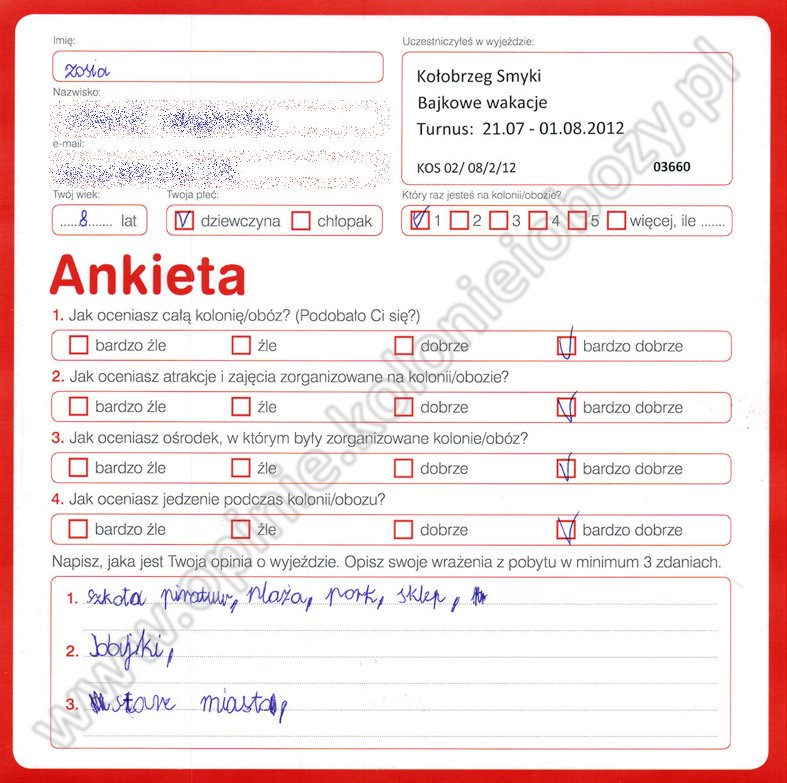 Imię:
zosia
Nazwisko:
e-mail:
Twój wiek:
.....8....... lat
Twoja płeć:
dziewczyna chłopak
Uczestniczyłeś w wyjeździe:
Kołobrzeg Smyki
Bajkowe wakacje
Turnus: 21.07 - 01.08.2012
KOS 02/ 08/2/12 03660
Który raz jesteś na kolonii/obozie?
1 2 3 4 5 więcej, ile .......
Ankieta
1. Jak oceniasz całą kolonię/obóz? (Podobało Ci się?)
bardzo źle źle dobrze bardzo dobrze
2. Jak oceniasz atrakcje i zajęcia zorganizowane na kolonii/obozie?
bardzo źle źle dobrze bardzo dobrze
3. Jak oceniasz ośrodek, w którym były zorganizowane kolonie/obóz?
bardzo źle źle dobrze bardzo dobrze
4. Jak oceniasz jedzenie podczas kolonii/obozu?
bardzo źle źle dobrze bardzo dobrze
Napisz, jaka jest Twoja opinia o wyjeździe. Opisz swoje wrażenia z pobytu w minimum 3 zdaniach.
1. szkoła piratuw, plaża, park, sklep,
2.
3. stare miasto,
www.opinie.kolonieiobozy.pl